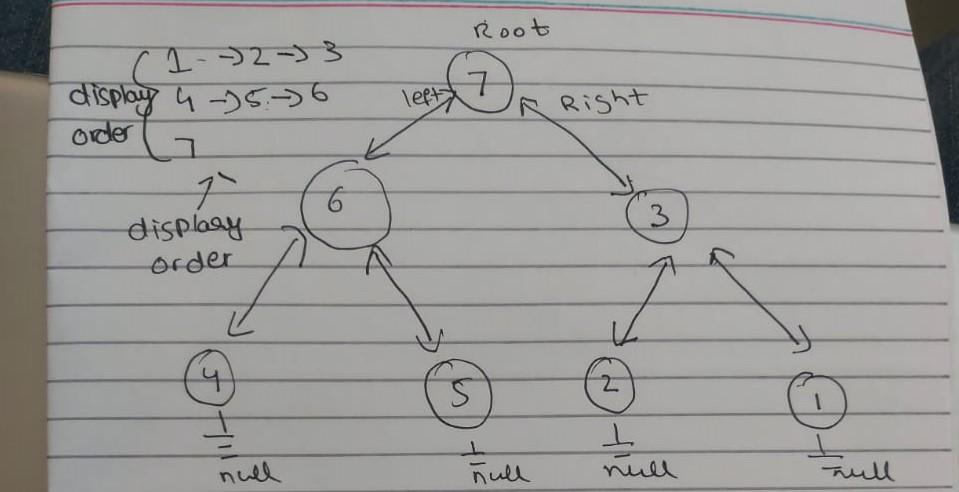 Root
1 -> 2 -> 3
display 4 -> 5 -> 6
order 7
displaay
order
7
left Right
6 3
4 5 2 1
null null null null